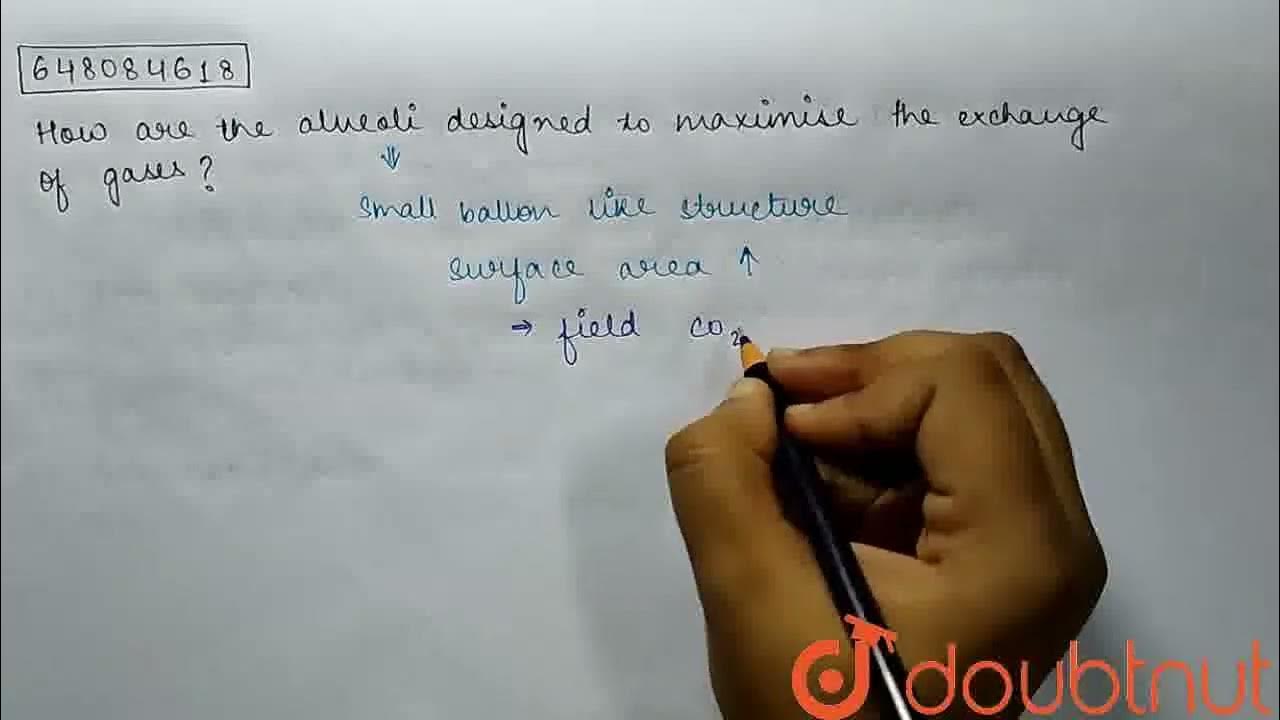 648084618
How are the alveoli designed to maximise the exchange
of gases?
⇓
Small ballon like structure
surface area ↑
⇒ field CO2
doubtnut